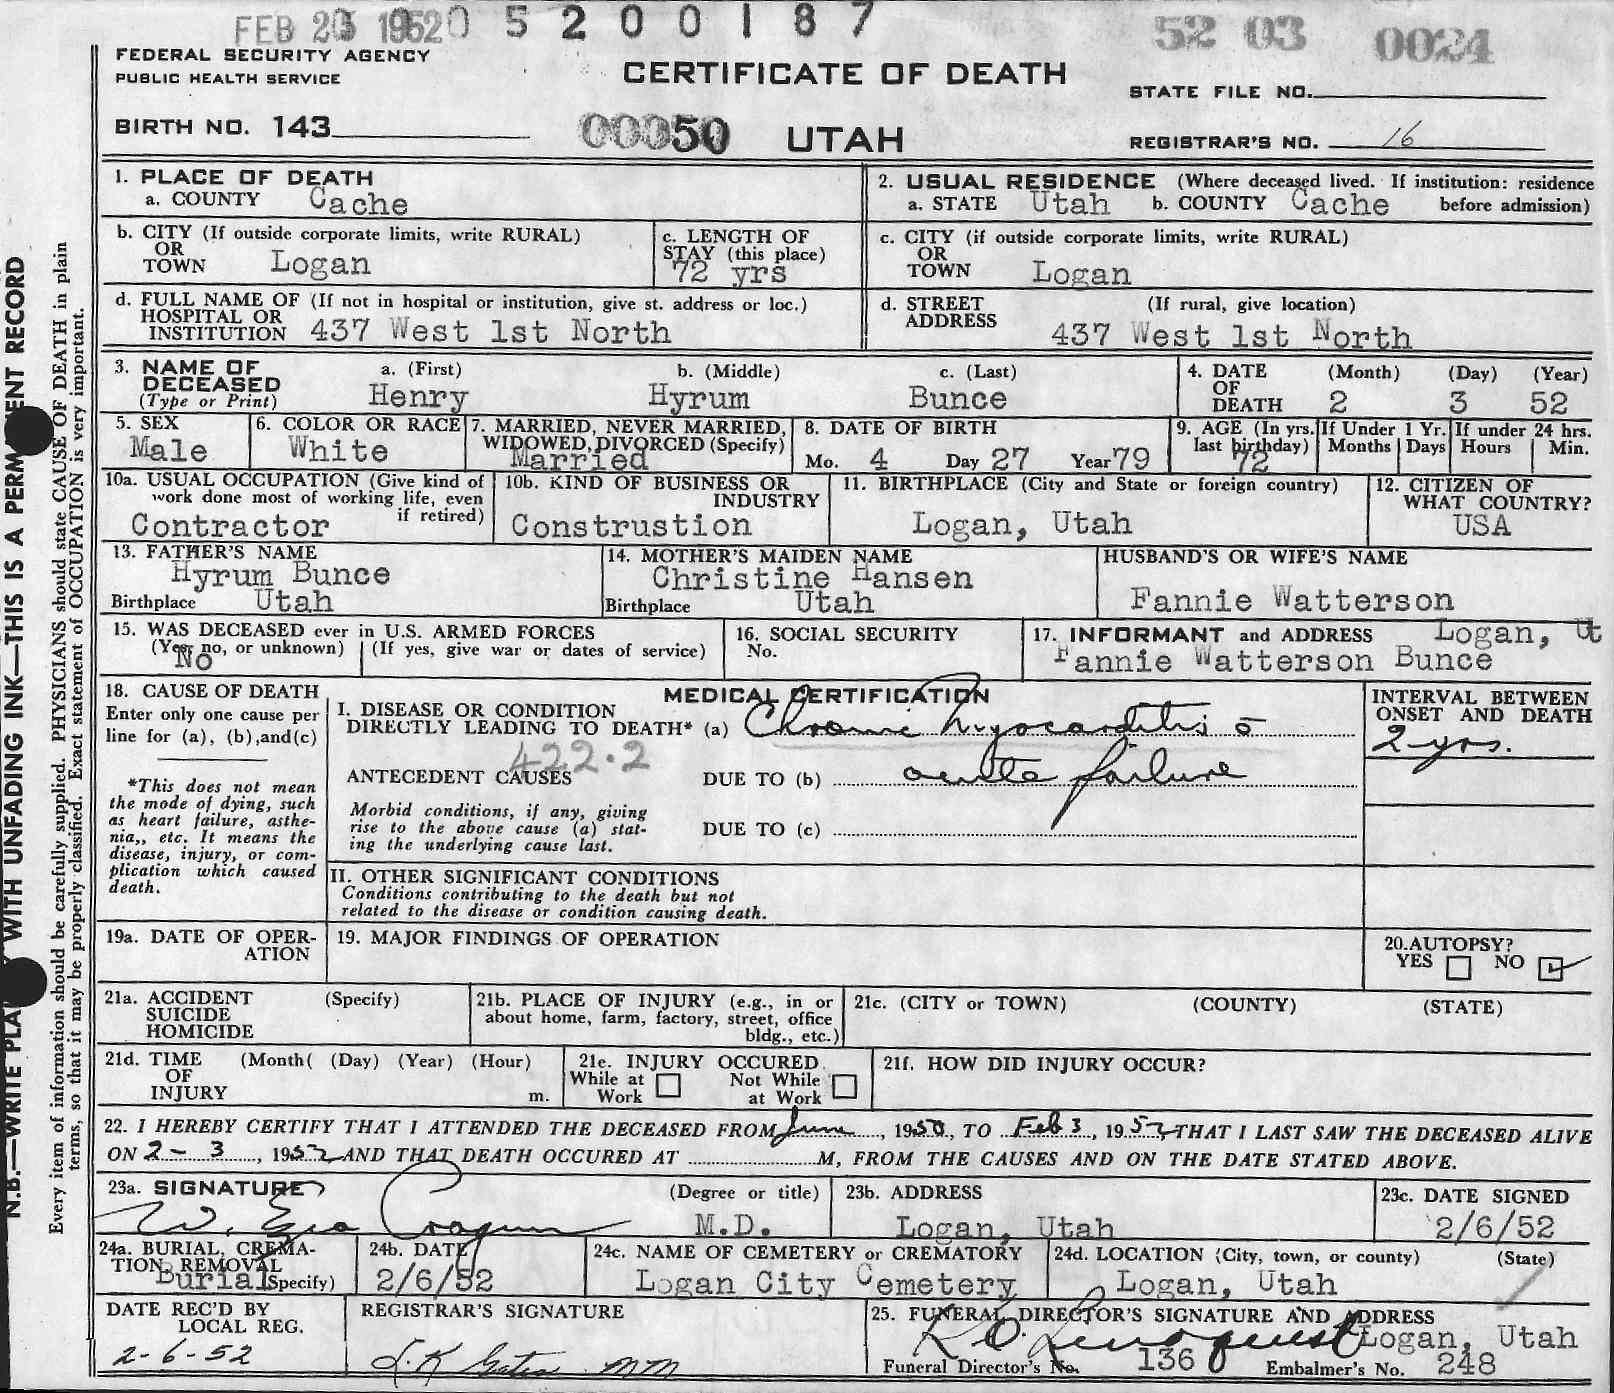 FEB 25 1952 0 5 2 0 0 1 8 7
52 03 0024
FEDERAL SECURITY AGENCY
PUBLIC HEALTH SERVICE
CERTIFICATE OF DEATH
STATE FILE NO.
BIRTH NO. 143
00050 UTAH
REGISTRAR'S NO. 16
1. PLACE OF DEATH
a. COUNTY Cache
2. USUAL RESIDENCE (Where deceased lived. If institution: residence
a. STATE Utah b. COUNTY Cache before admission)
b. CITY (If outside corporate limits, write RURAL)
OR
TOWN Logan
c. LENGTH OF
STAY (this place)
72 yrs
c. CITY (if outside corporate limits, write RURAL)
OR
TOWN Logan
d. FULL NAME OF (If not in hospital or institution, give st. address or loc.)
HOSPITAL OR
INSTITUTION 437 West 1st North
d. STREET (If rural, give location)
ADDRESS
437 West 1st North
3. NAME OF
DECEASED
(Type or Print)
a. (First)
Henry
b. (Middle)
Hyrum
c. (Last)
Bunce
4. DATE (Month) (Day) (Year)
OF
DEATH 2 3 52
5. SEX
Male
6. COLOR OR RACE
White
7. MARRIED, NEVER MARRIED,
WIDOWED, DIVORCED (Specify)
Married
8. DATE OF BIRTH
Mo. 4 Day 27 Year 79
9. AGE (In yrs.
last birthday)
72
If Under 1 Yr.
Months Days
If under 24 hrs.
Hours Min.
10a. USUAL OCCUPATION (Give kind of
work done most of working life, even
if retired)
Contractor
10b. KIND OF BUSINESS OR
INDUSTRY
Construstion
11. BIRTHPLACE (City and State or foreign country)
Logan, Utah
12. CITIZEN OF
WHAT COUNTRY?
USA
13. FATHER'S NAME
Hyrum Bunce
Birthplace Utah
14. MOTHER'S MAIDEN NAME
Christine Hansen
Birthplace Utah
HUSBAND'S OR WIFE'S NAME
Fannie Watterson
15. WAS DECEASED ever in U.S. ARMED FORCES
(Yes, no, or unknown) (If yes, give war or dates of service)
No
16. SOCIAL SECURITY
No.
17. INFORMANT and ADDRESS Logan, Ut
Fannie Watterson Bunce
18. CAUSE OF DEATH
Enter only one cause per
line for (a), (b),and(c)
*This does not mean
the mode of dying, such
as heart failure, asthe-
nia,, etc. It means the
disease, injury, or com-
plication which caused
death.
MEDICAL CERTIFICATION
I. DISEASE OR CONDITION
DIRECTLY LEADING TO DEATH* (a) Chronic Myocarditis c̄
422.2
ANTECEDENT CAUSES DUE TO (b) acute failure
Morbid conditions, if any, giving
rise to the above cause (a) stat-
ing the underlying cause last.
DUE TO (c)
INTERVAL BETWEEN
ONSET AND DEATH
2 yrs.
II. OTHER SIGNIFICANT CONDITIONS
Conditions contributing to the death but not
related to the disease or condition causing death.
19a. DATE OF OPER-
ATION
19. MAJOR FINDINGS OF OPERATION
20. AUTOPSY?
YES NO
21a. ACCIDENT (Specify)
SUICIDE
HOMICIDE
21b. PLACE OF INJURY (e.g., in or
about home, farm, factory, street, office
bldg., etc.)
21c. (CITY or TOWN) (COUNTY) (STATE)
21d. TIME (Month( (Day) (Year) (Hour)
OF
INJURY m.
21e. INJURY OCCURED
While at Not While
Work at Work
21f. HOW DID INJURY OCCUR?
22. I HEREBY CERTIFY THAT I ATTENDED THE DECEASED FROM June, 1950, TO Feb 3, 1952, THAT I LAST SAW THE DECEASED ALIVE
ON 2-3, 1952 AND THAT DEATH OCCURED AT M, FROM THE CAUSES AND ON THE DATE STATED ABOVE.
23a. SIGNATURE (Degree or title)
W. Cragun M.D.
23b. ADDRESS
Logan, Utah
23c. DATE SIGNED
2/6/52
24a. BURIAL, CREMA-
TION, REMOVAL
(Specify)
Burial
24b. DATE
2/6/52
24c. NAME OF CEMETERY or CREMATORY
Logan City Cemetery
24d. LOCATION (City, town, or county) (State)
Logan, Utah
DATE REC'D BY
LOCAL REG.
2-6-52
REGISTRAR'S SIGNATURE
25. FUNERAL DIRECTOR'S SIGNATURE AND ADDRESS
Logan, Utah
Funeral Director's No. 136 Embalmer's No. 248
N.B.—WRITE WITH UNFADING INK—THIS IS A RECORD
Every item of information should be carefully supplied. PHYSICIANS should state CAUSE OF DEATH in plain
terms, so that it may be properly classified. Exact statement of OCCUPATION is very important.